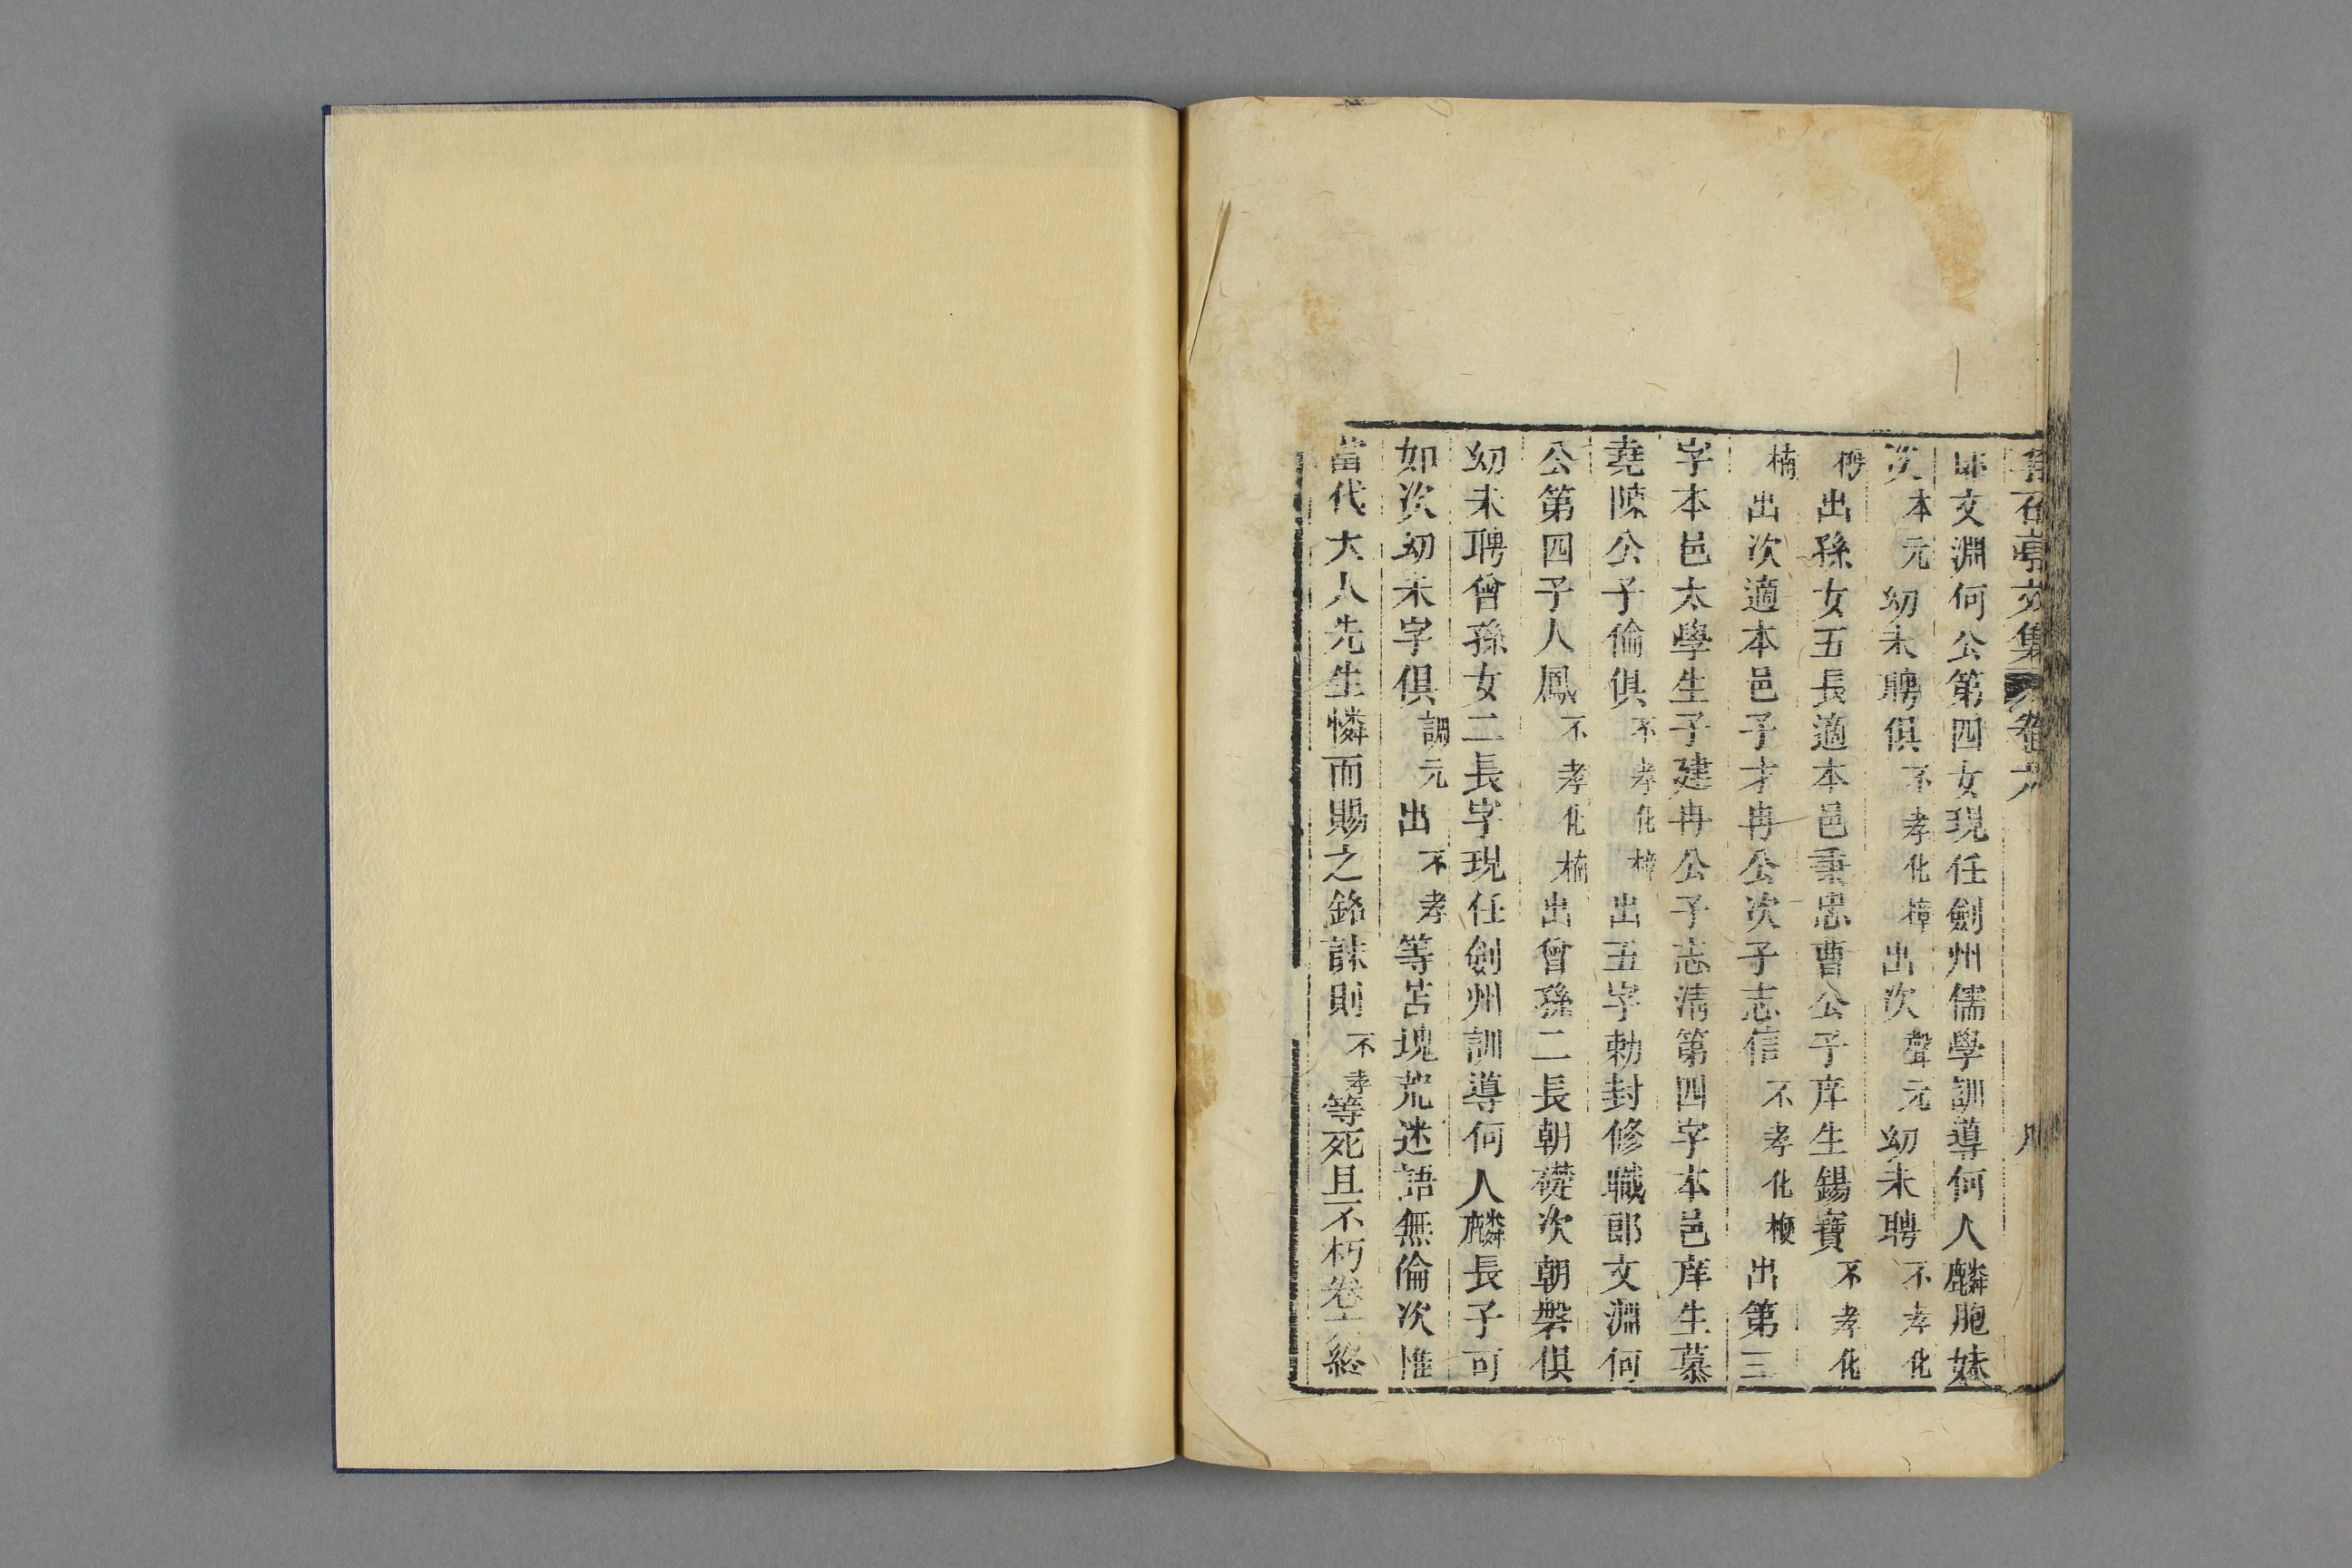 石亭文集 卷六
郎文淵何公第四女現任劍州儒學訓導何人麟胞妹
次本元幼未聘俱不孝化樟出次聲元幼未聘不孝化
樗出孫女五長適本邑秉忠曹公子庠生錫寶不孝化
楠出次適本邑子才冉公次子志信不孝化楩出第三
字本邑太學生子建冉公子志清第四字本邑庠生慕
堯陳公子倫俱不孝化梓出五字勅封修職郎文淵何
公第四子人鳳不孝化楠出曾孫二長朝礎次朝磐俱
幼未聘曾孫女二長字現任劍州訓導何人麟長子可
如次幼未字俱調元出不孝等苫塊荒迷語無倫次惟
當代大人先生憐而賜之銘誄則不孝等死且不朽卷六終